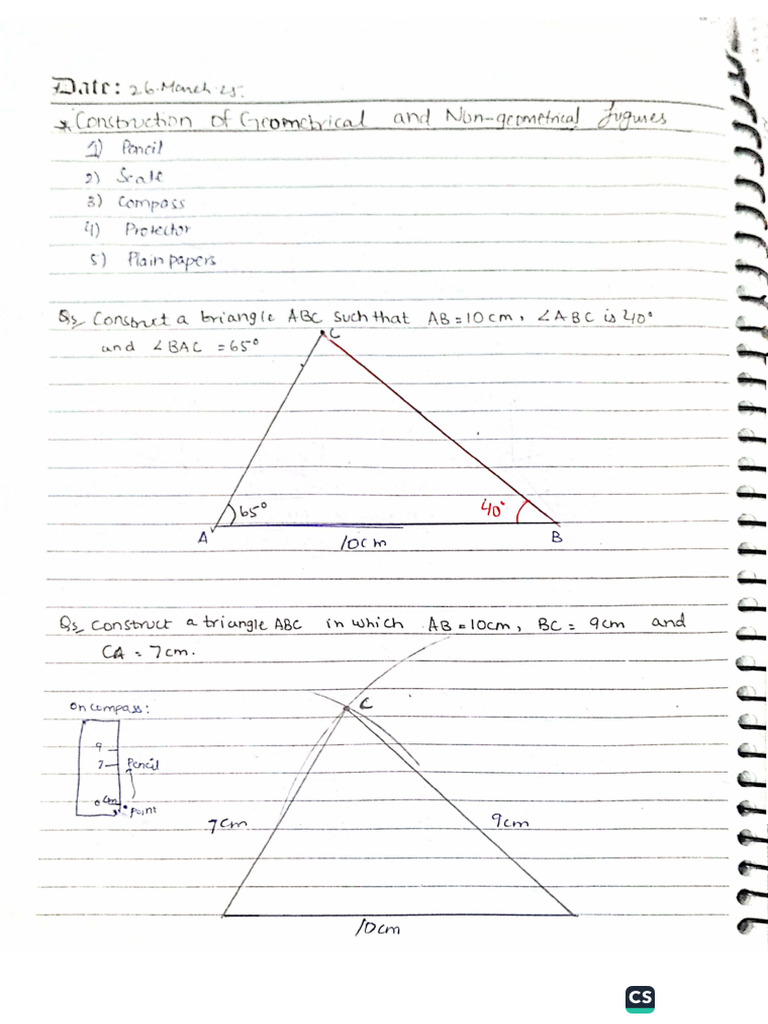 Date: 26.March.25.
* Construction of Geometrical and Non-geometrical fugures
1) Pencil
2) Scale
3) Compass
4) Protector
5) Plain papers
Qs, Construct a triangle ABC such that AB = 10 cm, ∠ABC is 40°
and ∠BAC = 65°
C
65°
40°
A
B
10cm
Qs, Construct a triangle ABC in which AB = 10cm, BC = 9cm and
CA = 7cm.
On compass:
C
9
7
Pencil
0 cm
point
7cm
9cm
10cm
CS